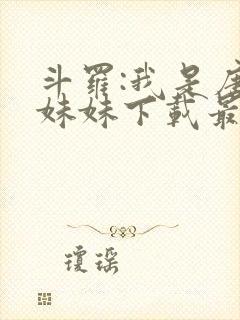 斗羅:我是唐
妹妹下載最
瓊瑤